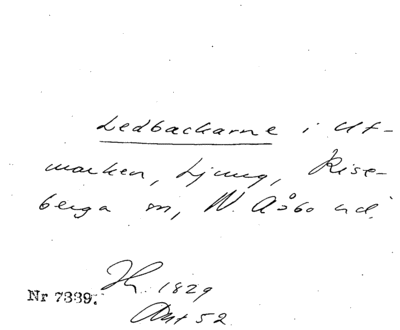 Ledbackarne i Ut-
marken, Ljung, Rise-
berga sn, N. Åsbo hd.
Hr. 1829
Nr 7339.
Akt 52